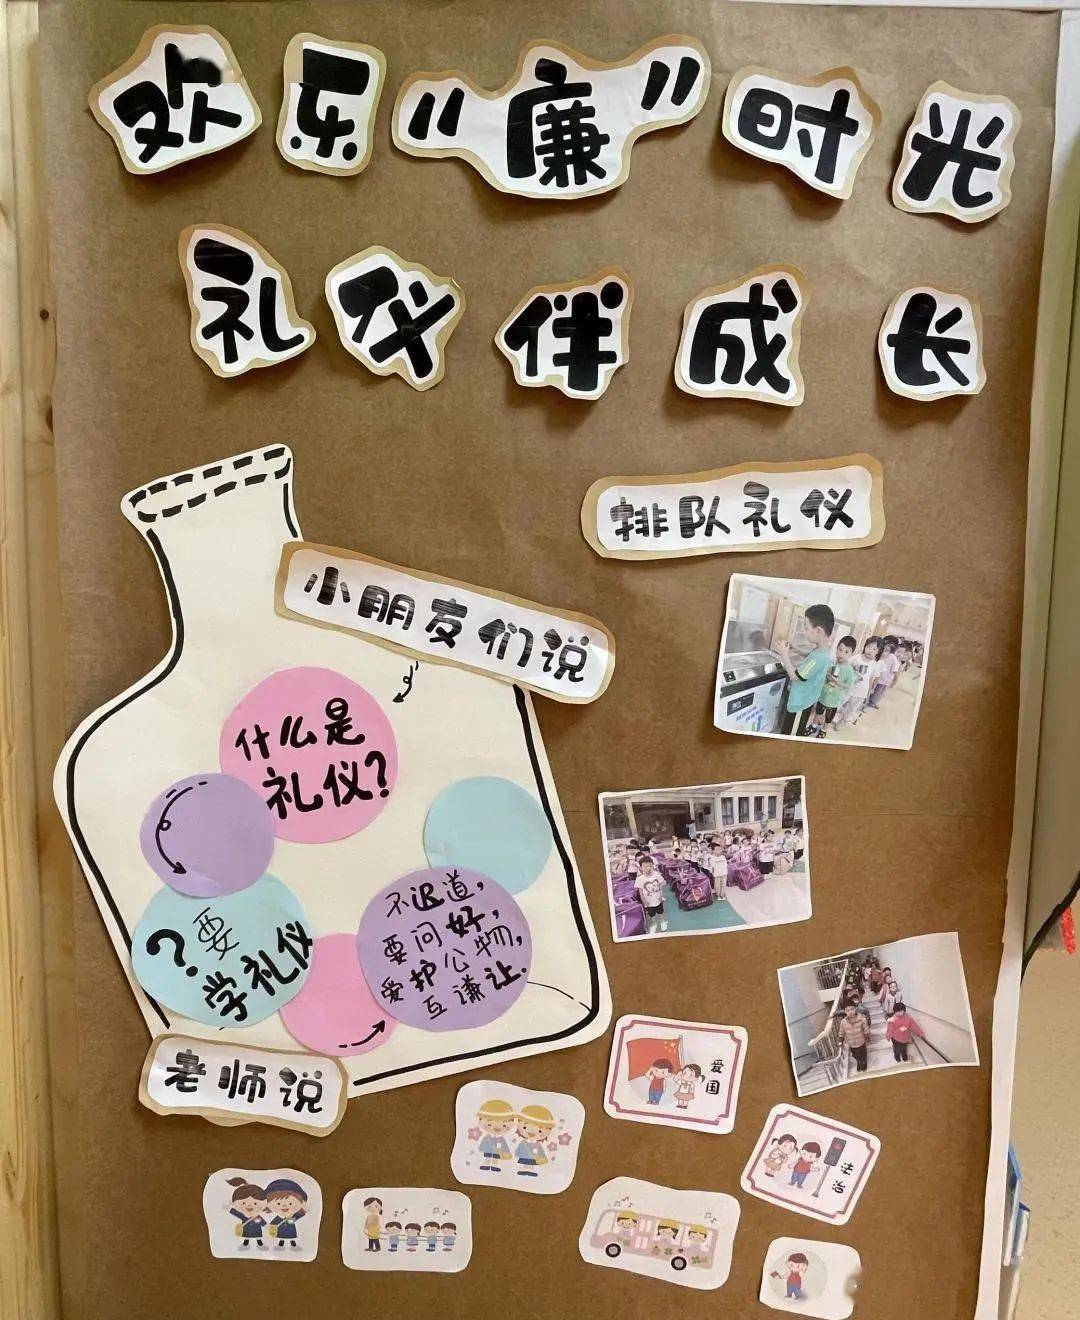 欢乐“廉”时光
礼仪伴成长
排队礼仪
小朋友们说
什么是
礼仪？
？要
学礼仪
不迟道，
要问好，
爱护公物，
互谦让.
老师说
爱国
法治